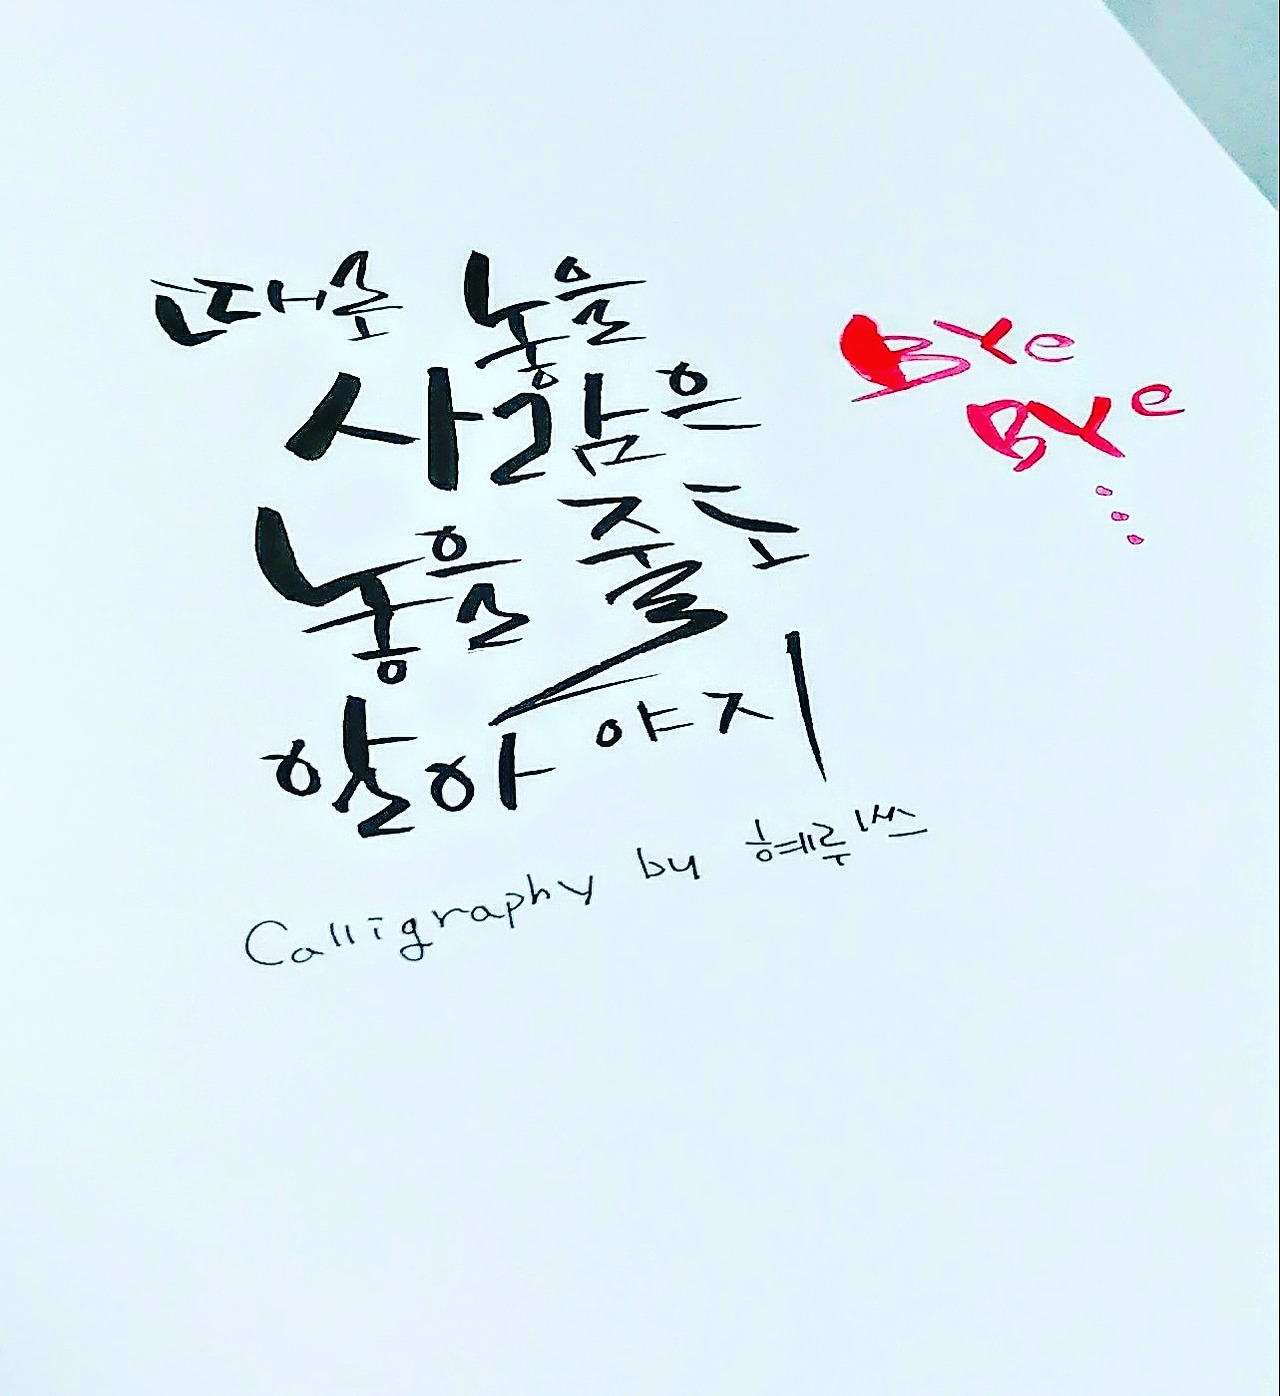 때론 놓을
사람은
놓을 줄도
알아야지
Bye
Bye
...
Calligraphy by